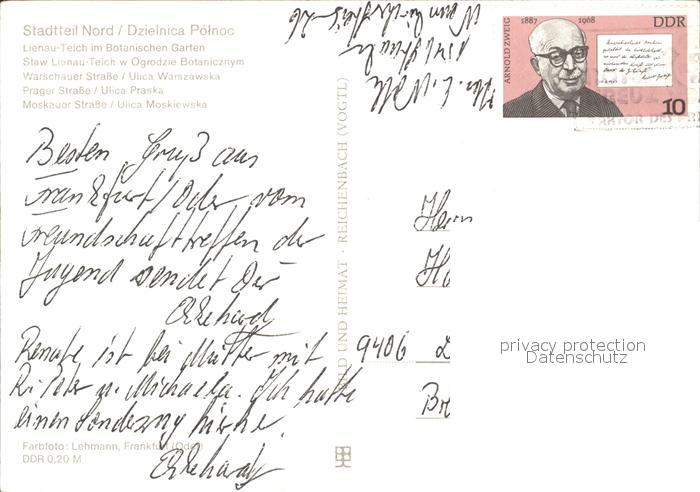 Stadtteil Nord / Dzielnica Północ
Lienau-Teich im Botanischen Garten
Staw Lienau-Teich w Ogrodzie Botanicznym
Warschauer Straße / Ulica Warszawska
Prager Straße / Ulica Praska
Moskauer Straße / Ulica Moskiewska
ARNOLD ZWEIG 1887 1968 DDR
10
Besten Gruß aus
Frankfurt/Oder vom
Freundschaftstreffen der
Jugend sendet Dir
Ekkehard
Renate ist bei Mutter mit
Peter u. Michaela. Ich hatte
einen Sonderzug hierhe.
Ekkehard
Farbfoto: Lehmann, Frankfurt (Oder)
DDR 0,20 M
BILD UND HEIMAT · REICHENBACH (VOGTL)
Herrn
9406
privacy protection
Datenschutz